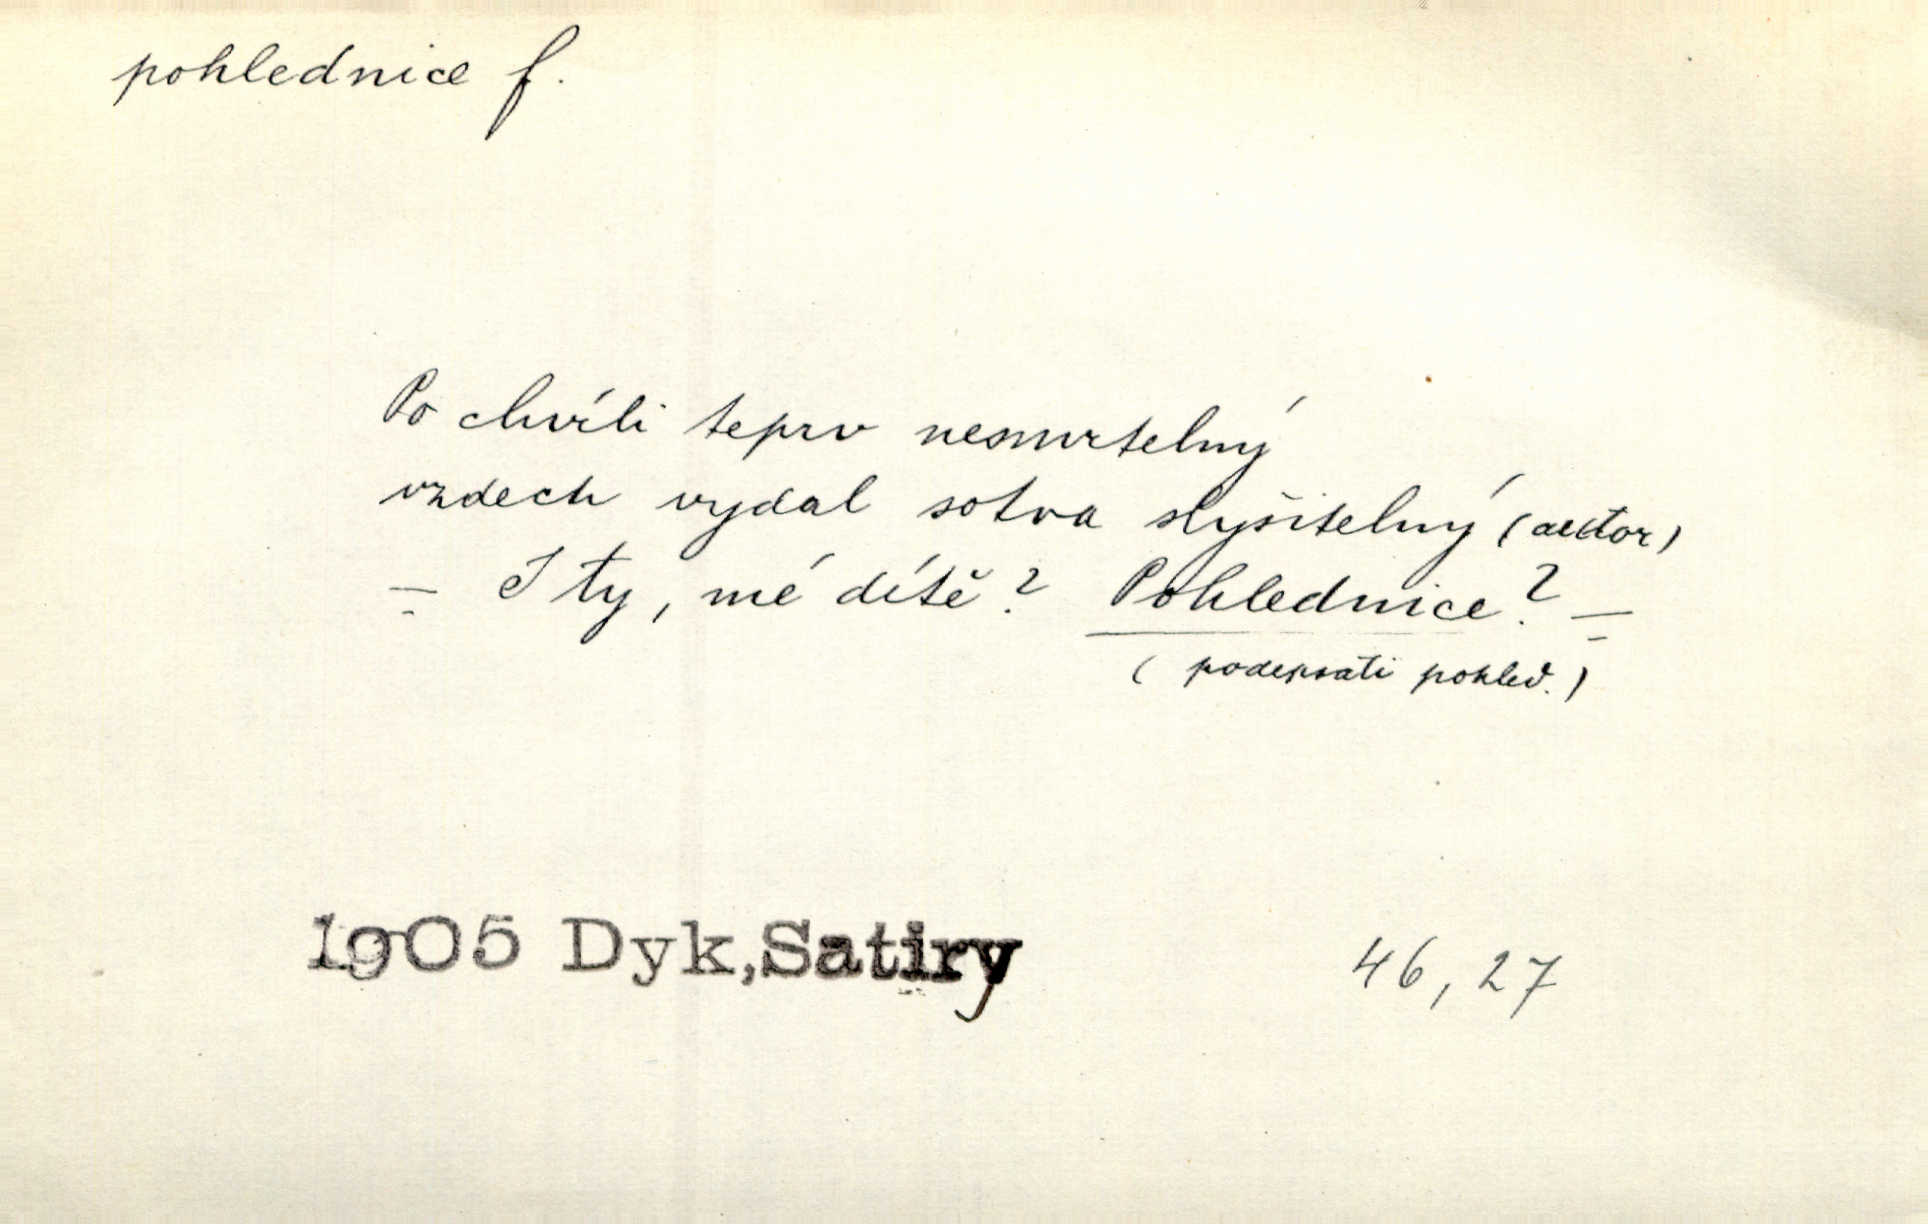 pohlednice f.
Po chvíli teprv nesmrtelný
vzdech vydal sotva slyšitelný (autor)
— I ty, mé dítě? Pohlednice? —
(podepsati pohled.)
1905 Dyk, Satiry 46, 27